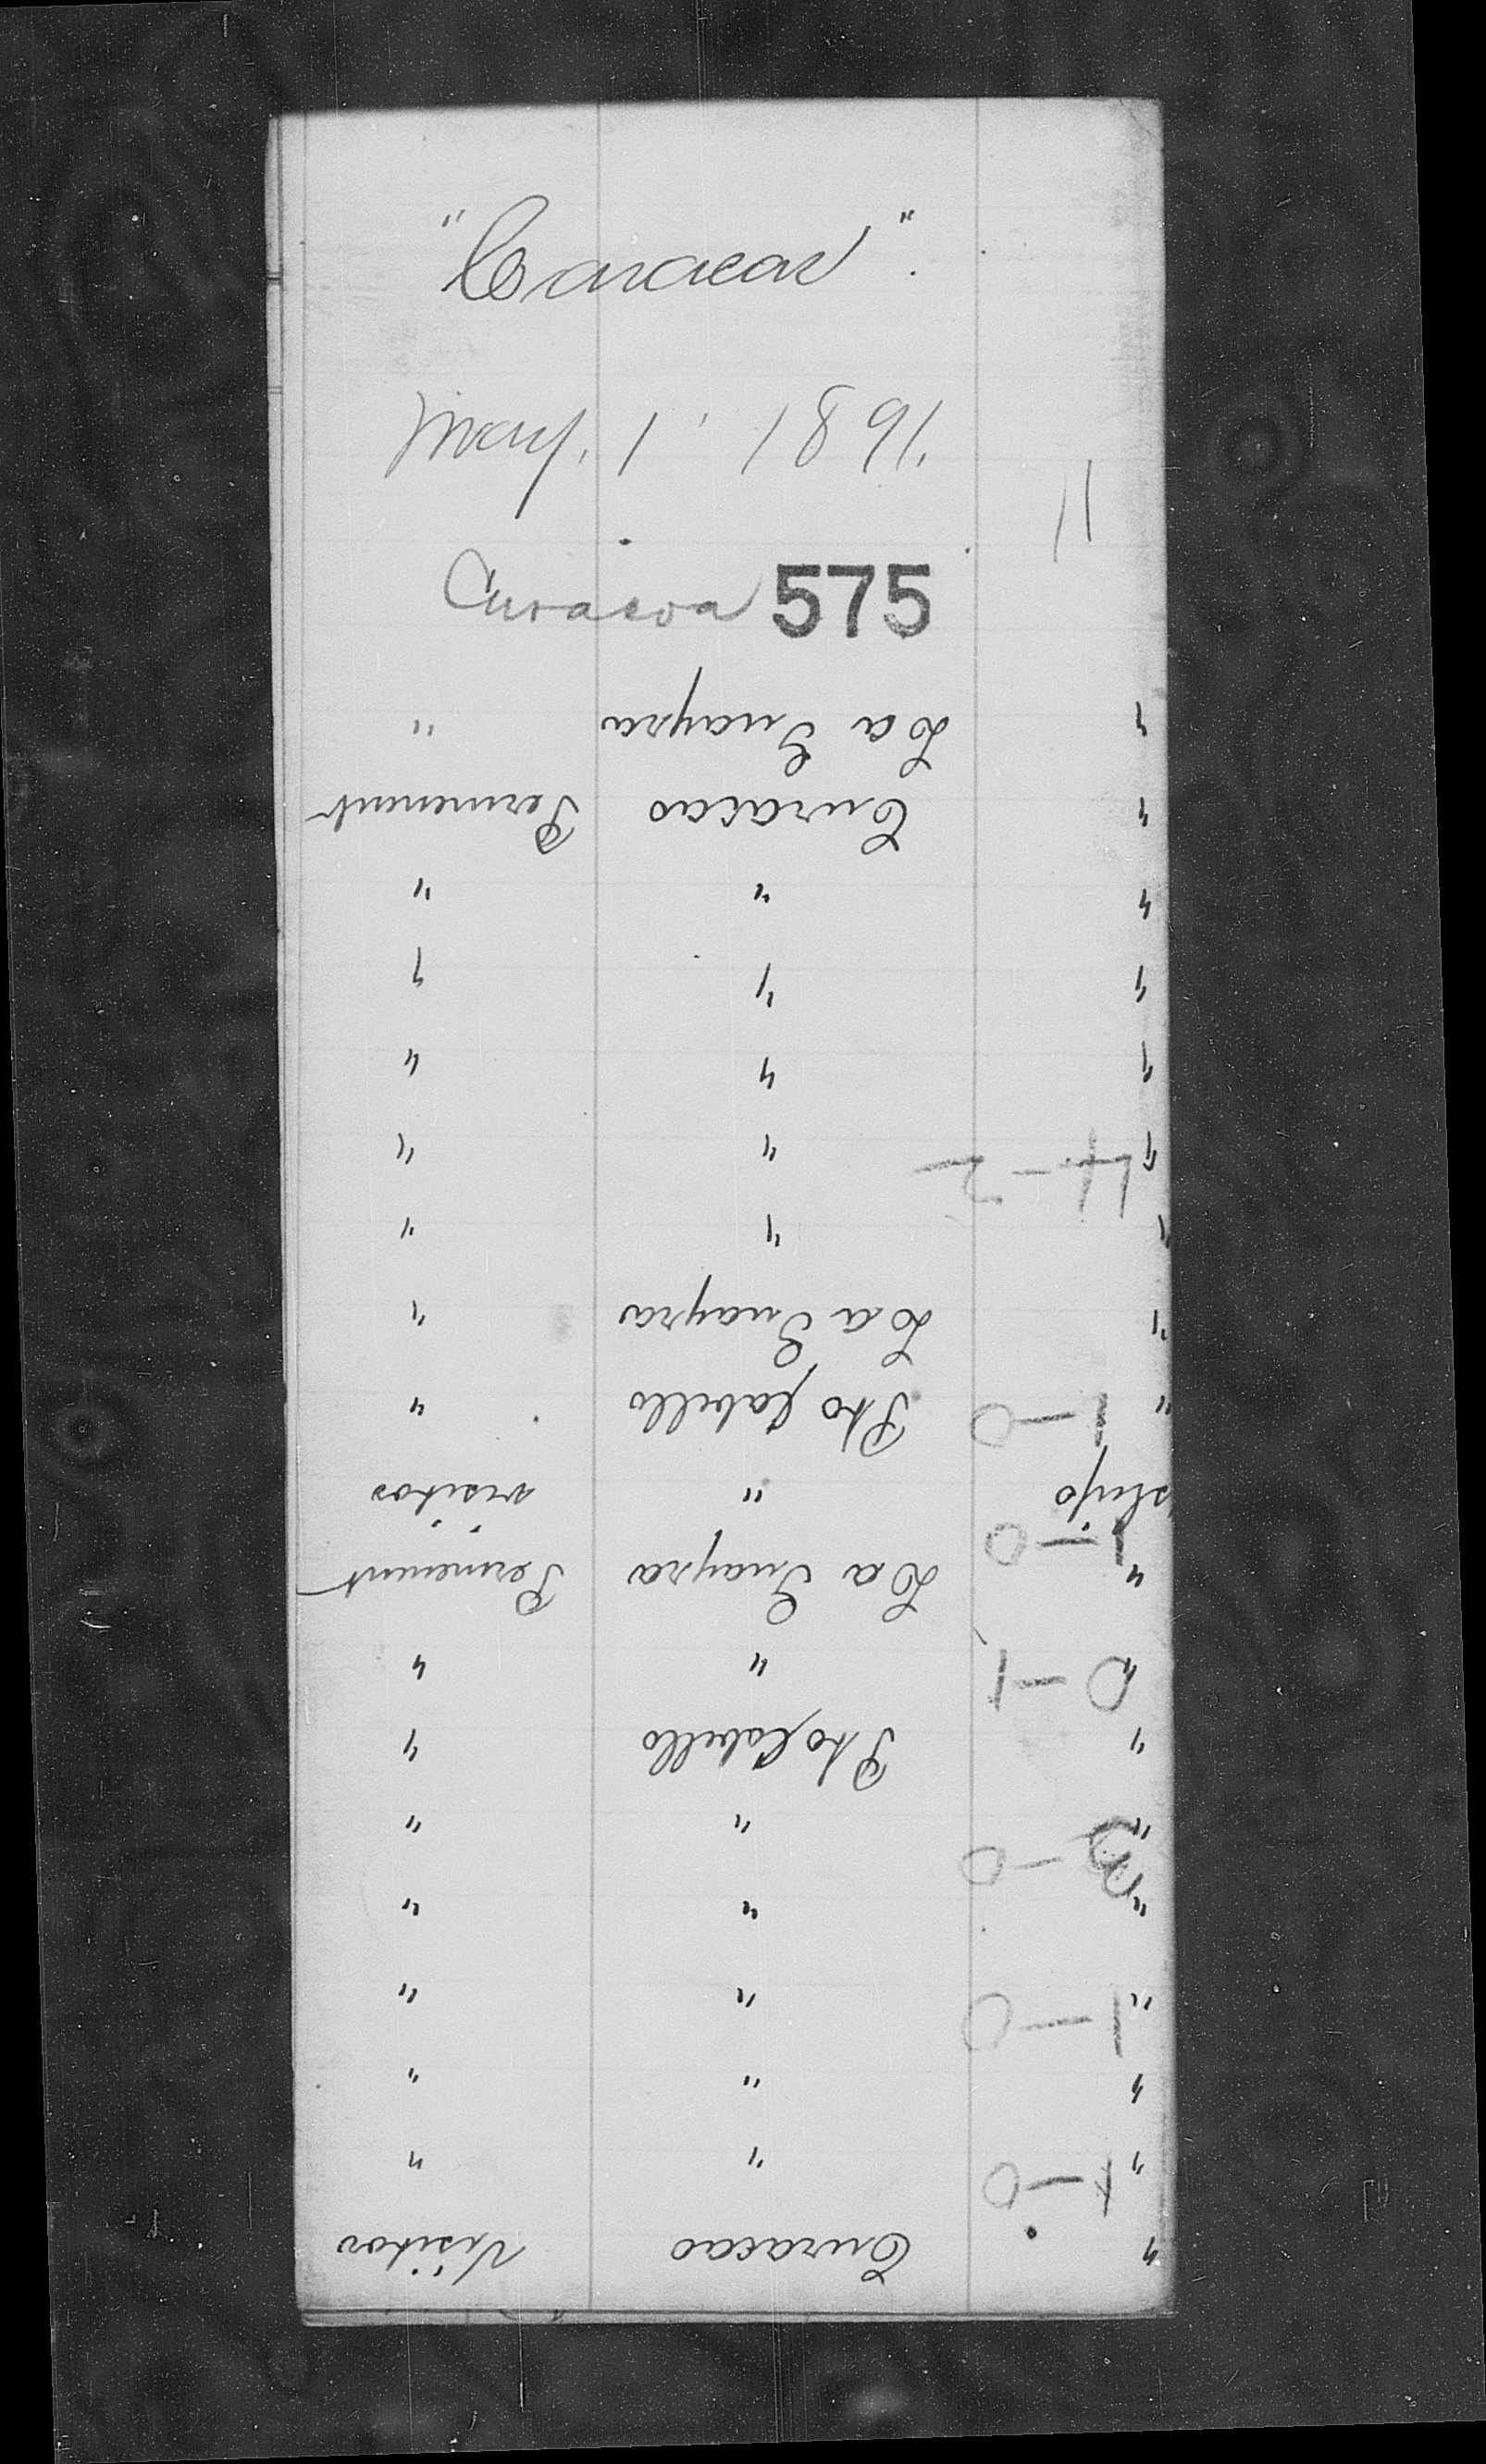 "Caracas".
May. 1' 1891.
11
Curacoa 575
" Curacao Visitor
1-0
" " "
" " "
1-0
" " "
" " "
3-0
" " "
" Pto Cabello "
0-1
" " "
" La Guayra Permenent
1-0
" visitor
1-0
" Pto Cabello "
" La Guayra "
" " "
4-2
" " "
" " "
" " "
" " "
" Curacao Permenent
" La Guayra "